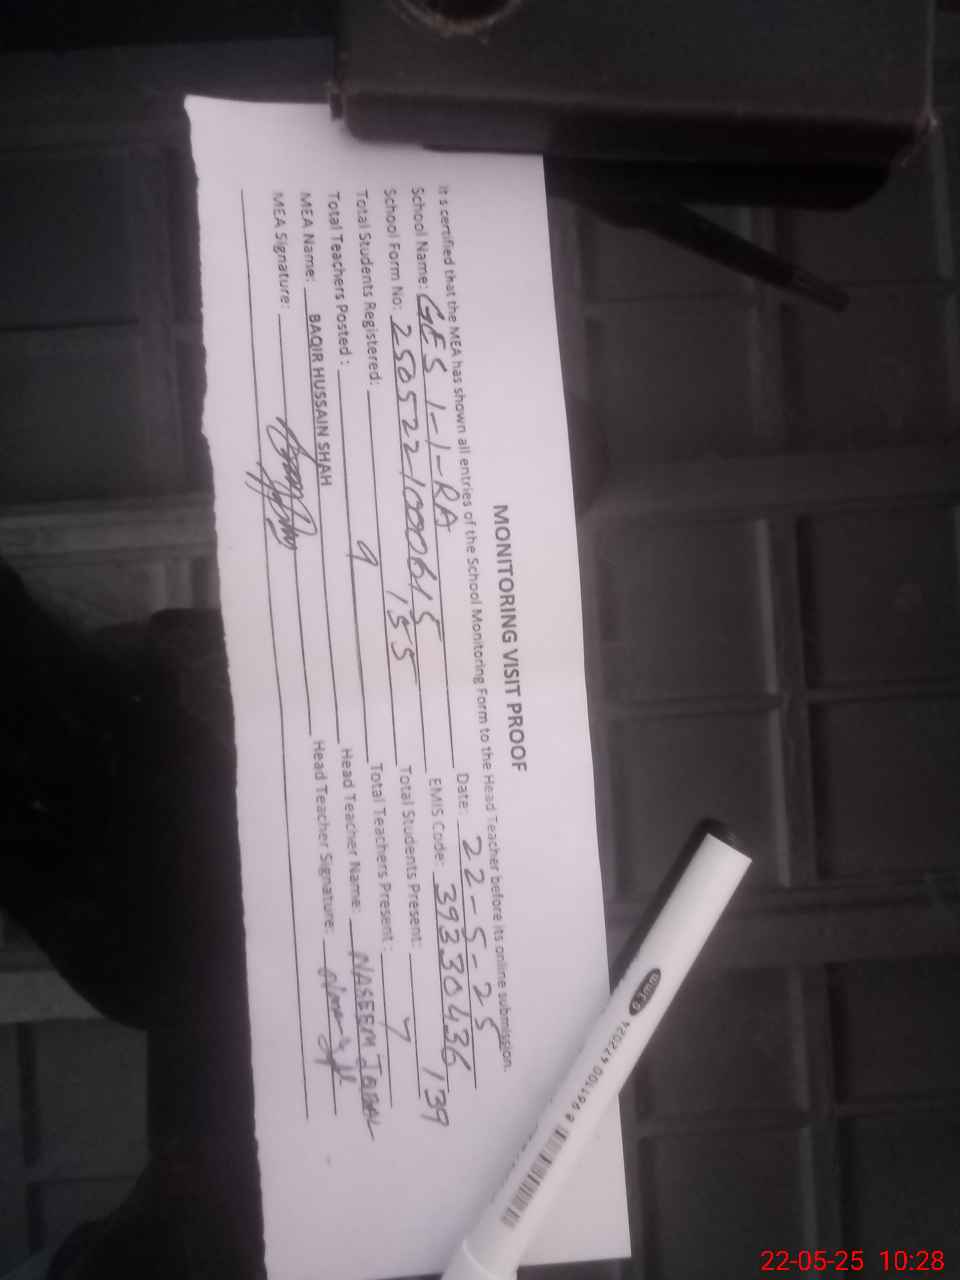 MONITORING VISIT PROOF
It s certified that the MEA has shown all entries of the School Monitoring Form to the Head Teacher before its online submission.
School Name: GES 1-1-RA Date: 22-5-25
School Form No: 250522-1000615 EMIS Code: 39330436
Total Students Registered: 155 Total Students Present: 139
Total Teachers Posted : 9 Total Teachers Present : 7
MEA Name: BAQIR HUSSAIN SHAH Head Teacher Name: NASEEM
MEA Signature: Head Teacher Signature:
0.3mm
8 961100 472024
22-05-25 10:28